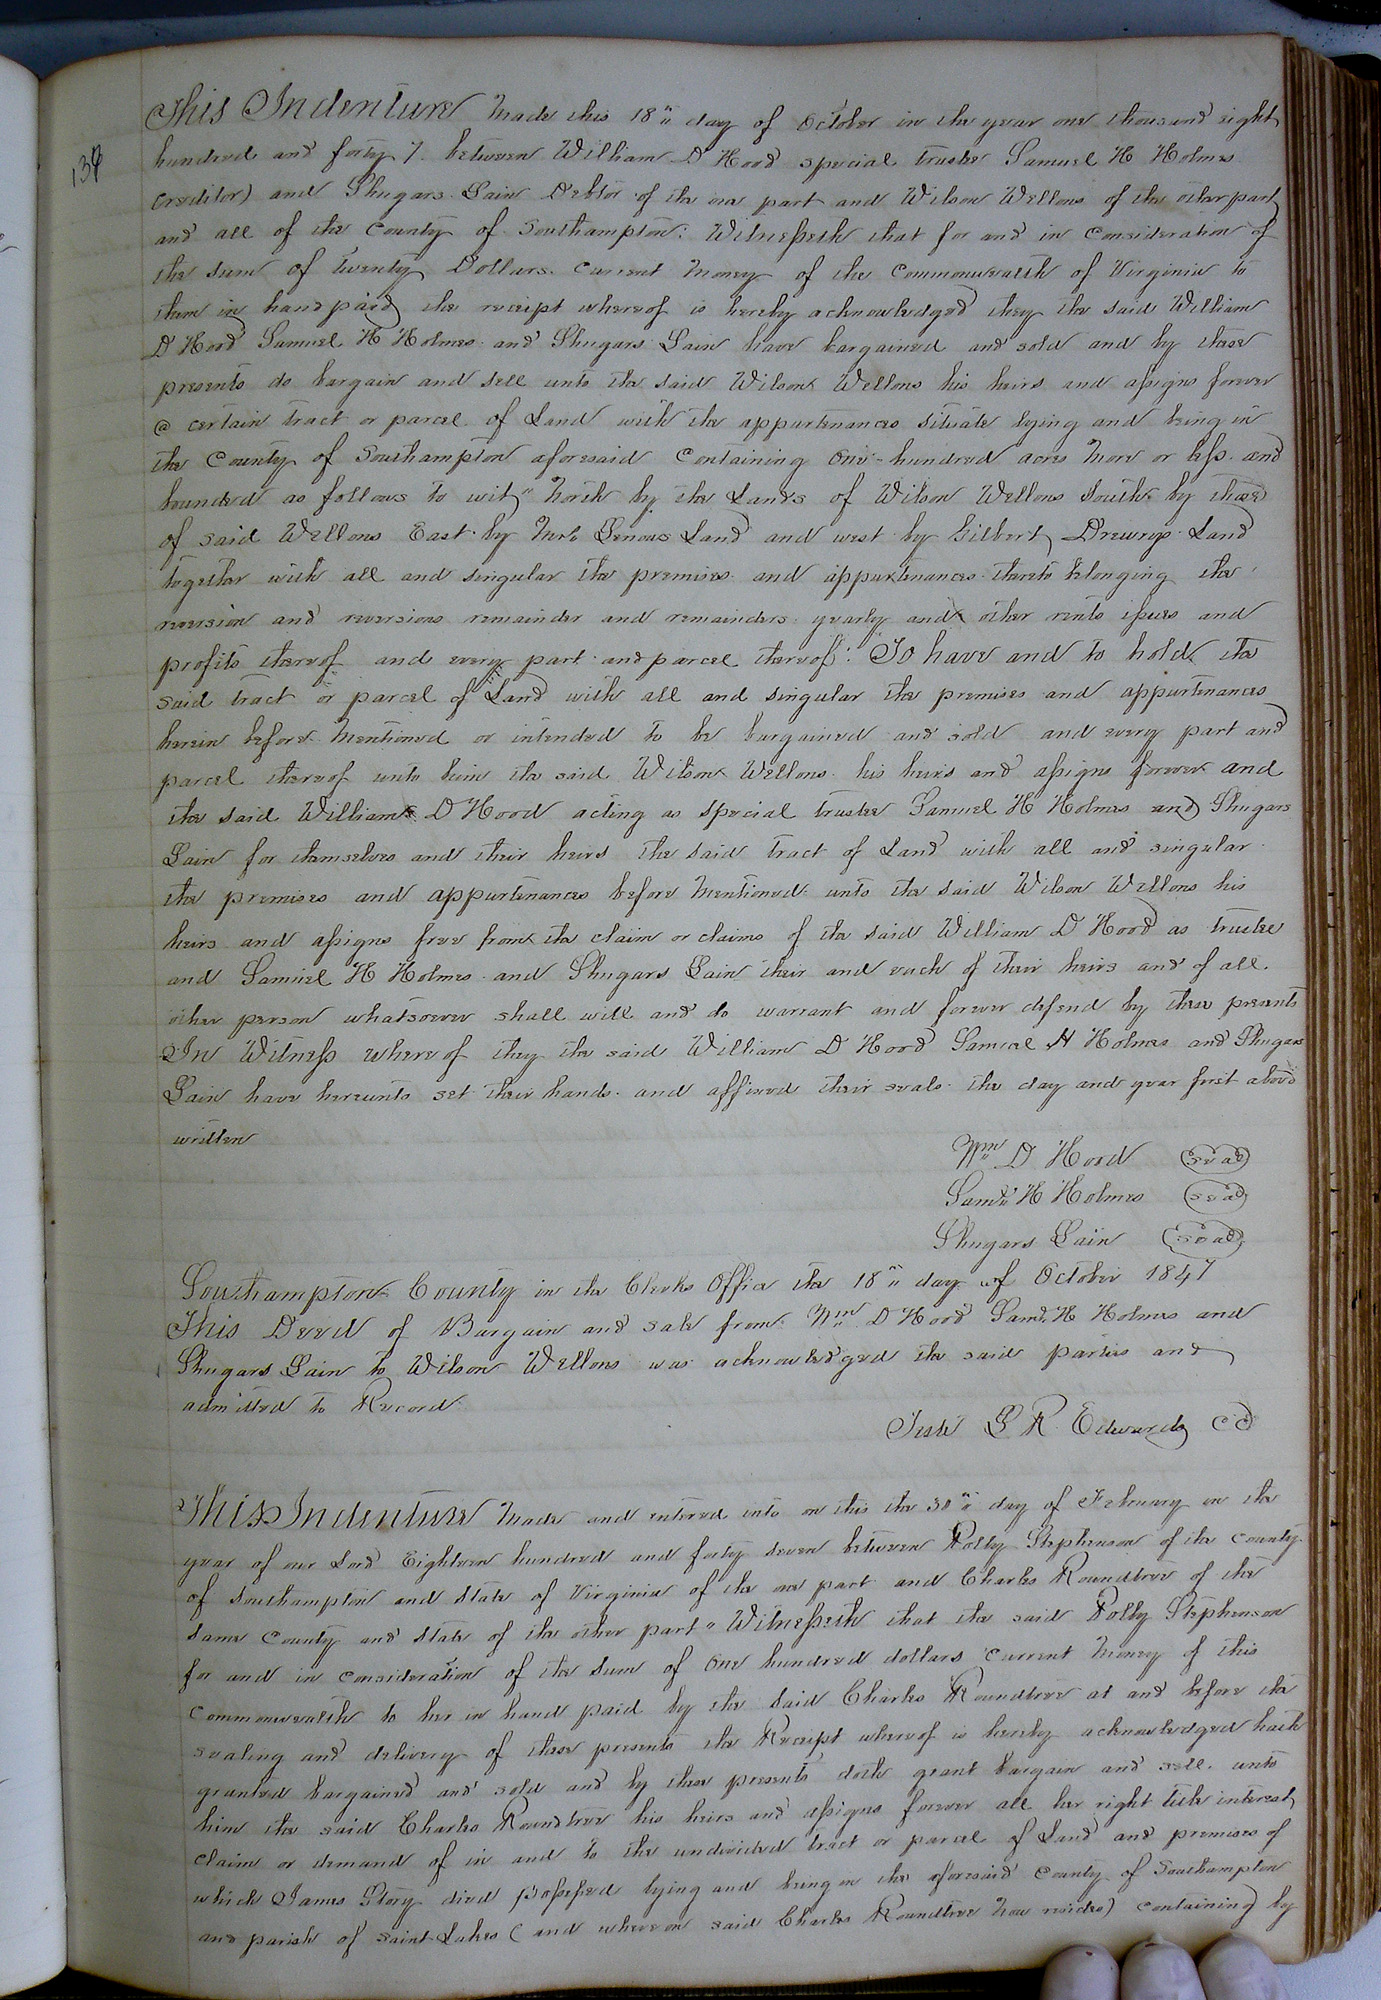 This Indenture Made this 18" day of October in the year one thousand eight
hundred and forty 7. between William D Hood special trustee Samuel H Holmes
creditor) and Shugars Lain Debtor of the one part and Wilson Wellons of the other part
and all of the County of Southampton: Witnesseth that for and in Consideration of
the sum of Twenty Dollars. Current Money of the Commonwealth of Virginia to
them in hand paid the receipt whereof is hereby acknowledged they the said William
D Hood Samuel H Holmes and Shugars Lain have bargained and sold and by these
presents do bargain and sell unto the said Wilson Wellons his heirs and assigns forever
a certain tract or parcel of Land with the appurtenances Situate lying and being in
the County of Southampton aforesaid Containing One hundred acres More or less and
bounded as follows to wit" North by the Lands of Wilson Wellons South by those
of said Wellons East by Land and west by Gilbert Drewrys Land
together with all and singular the premises and appurtenances thereto belonging the
reversion and reversions remainder and remainders yearly and other rents issues and
profits thereof and every part and parcel thereof: To have and to hold the
said tract or parcel of Land with all and singular the premises and appurtenances
herein before Mentioned or intended to be bargained and sold and every part and
parcel thereof unto him the said Wilson Wellons his heirs and assigns forever and
the said William D Hood acting as special trustee Samuel H Holmes and Shugars
Lain for themselves and their heirs the said tract of Land with all and singular
the premises and appurtenances before Mentioned unto the said Wilson Wellons his
heirs and assigns free from the claim or claims of the said William D Hood as trustee
and Samuel H Holmes and Shugars Lain their and each of their heirs and of all
other person whatsoever shall will and do warrant and forever defend by these presents
In Witness whereof they the said William D Hood Samuel H Holmes and Shugars
Lain have hereunto set their hands and affixed their seals the day and year first above
written
Wm D Hood (seal)
Saml H Holmes (seal)
Shugars Lain (seal)
Southampton County in the Clerks Office the 18" day of October 1847
This Deed of Bargain and sale from Wm D Hood Saml H Holmes and
Shugars Lain to Wilson Wellons was acknowledged the said parties and
admitted to Record
Teste L R Edwards CC
This Indenture Made and entered into on this the day of February in the
year of our Lord Eighteen hundred and forty seven between Polly Stephenson of the county
of Southampton and State of Virginia of the one part and Charles Roundtree of the
same County and State of the other part" Witnesseth that the said Polly Stephenson
for and in consideration of the sum of One hundred dollars current Money of this
Commonwealth to her in hand paid by the said Charles Roundtree at and before the
sealing and delivery of these presents the Receipt whereof is hereby acknowledged hath
granted bargained and sold and by these presents doth grant bargain and sell unto
him the said Charles Roundtree his heirs and assigns forever all her right title interest
claim or demand of in and to the undivided tract or parcel of Land and premises of
which James Story died possessed lying and being in the aforesaid County of Southampton
and parish of Saint Lukes (and whereon said Charles Roundtree Now resides) containing by